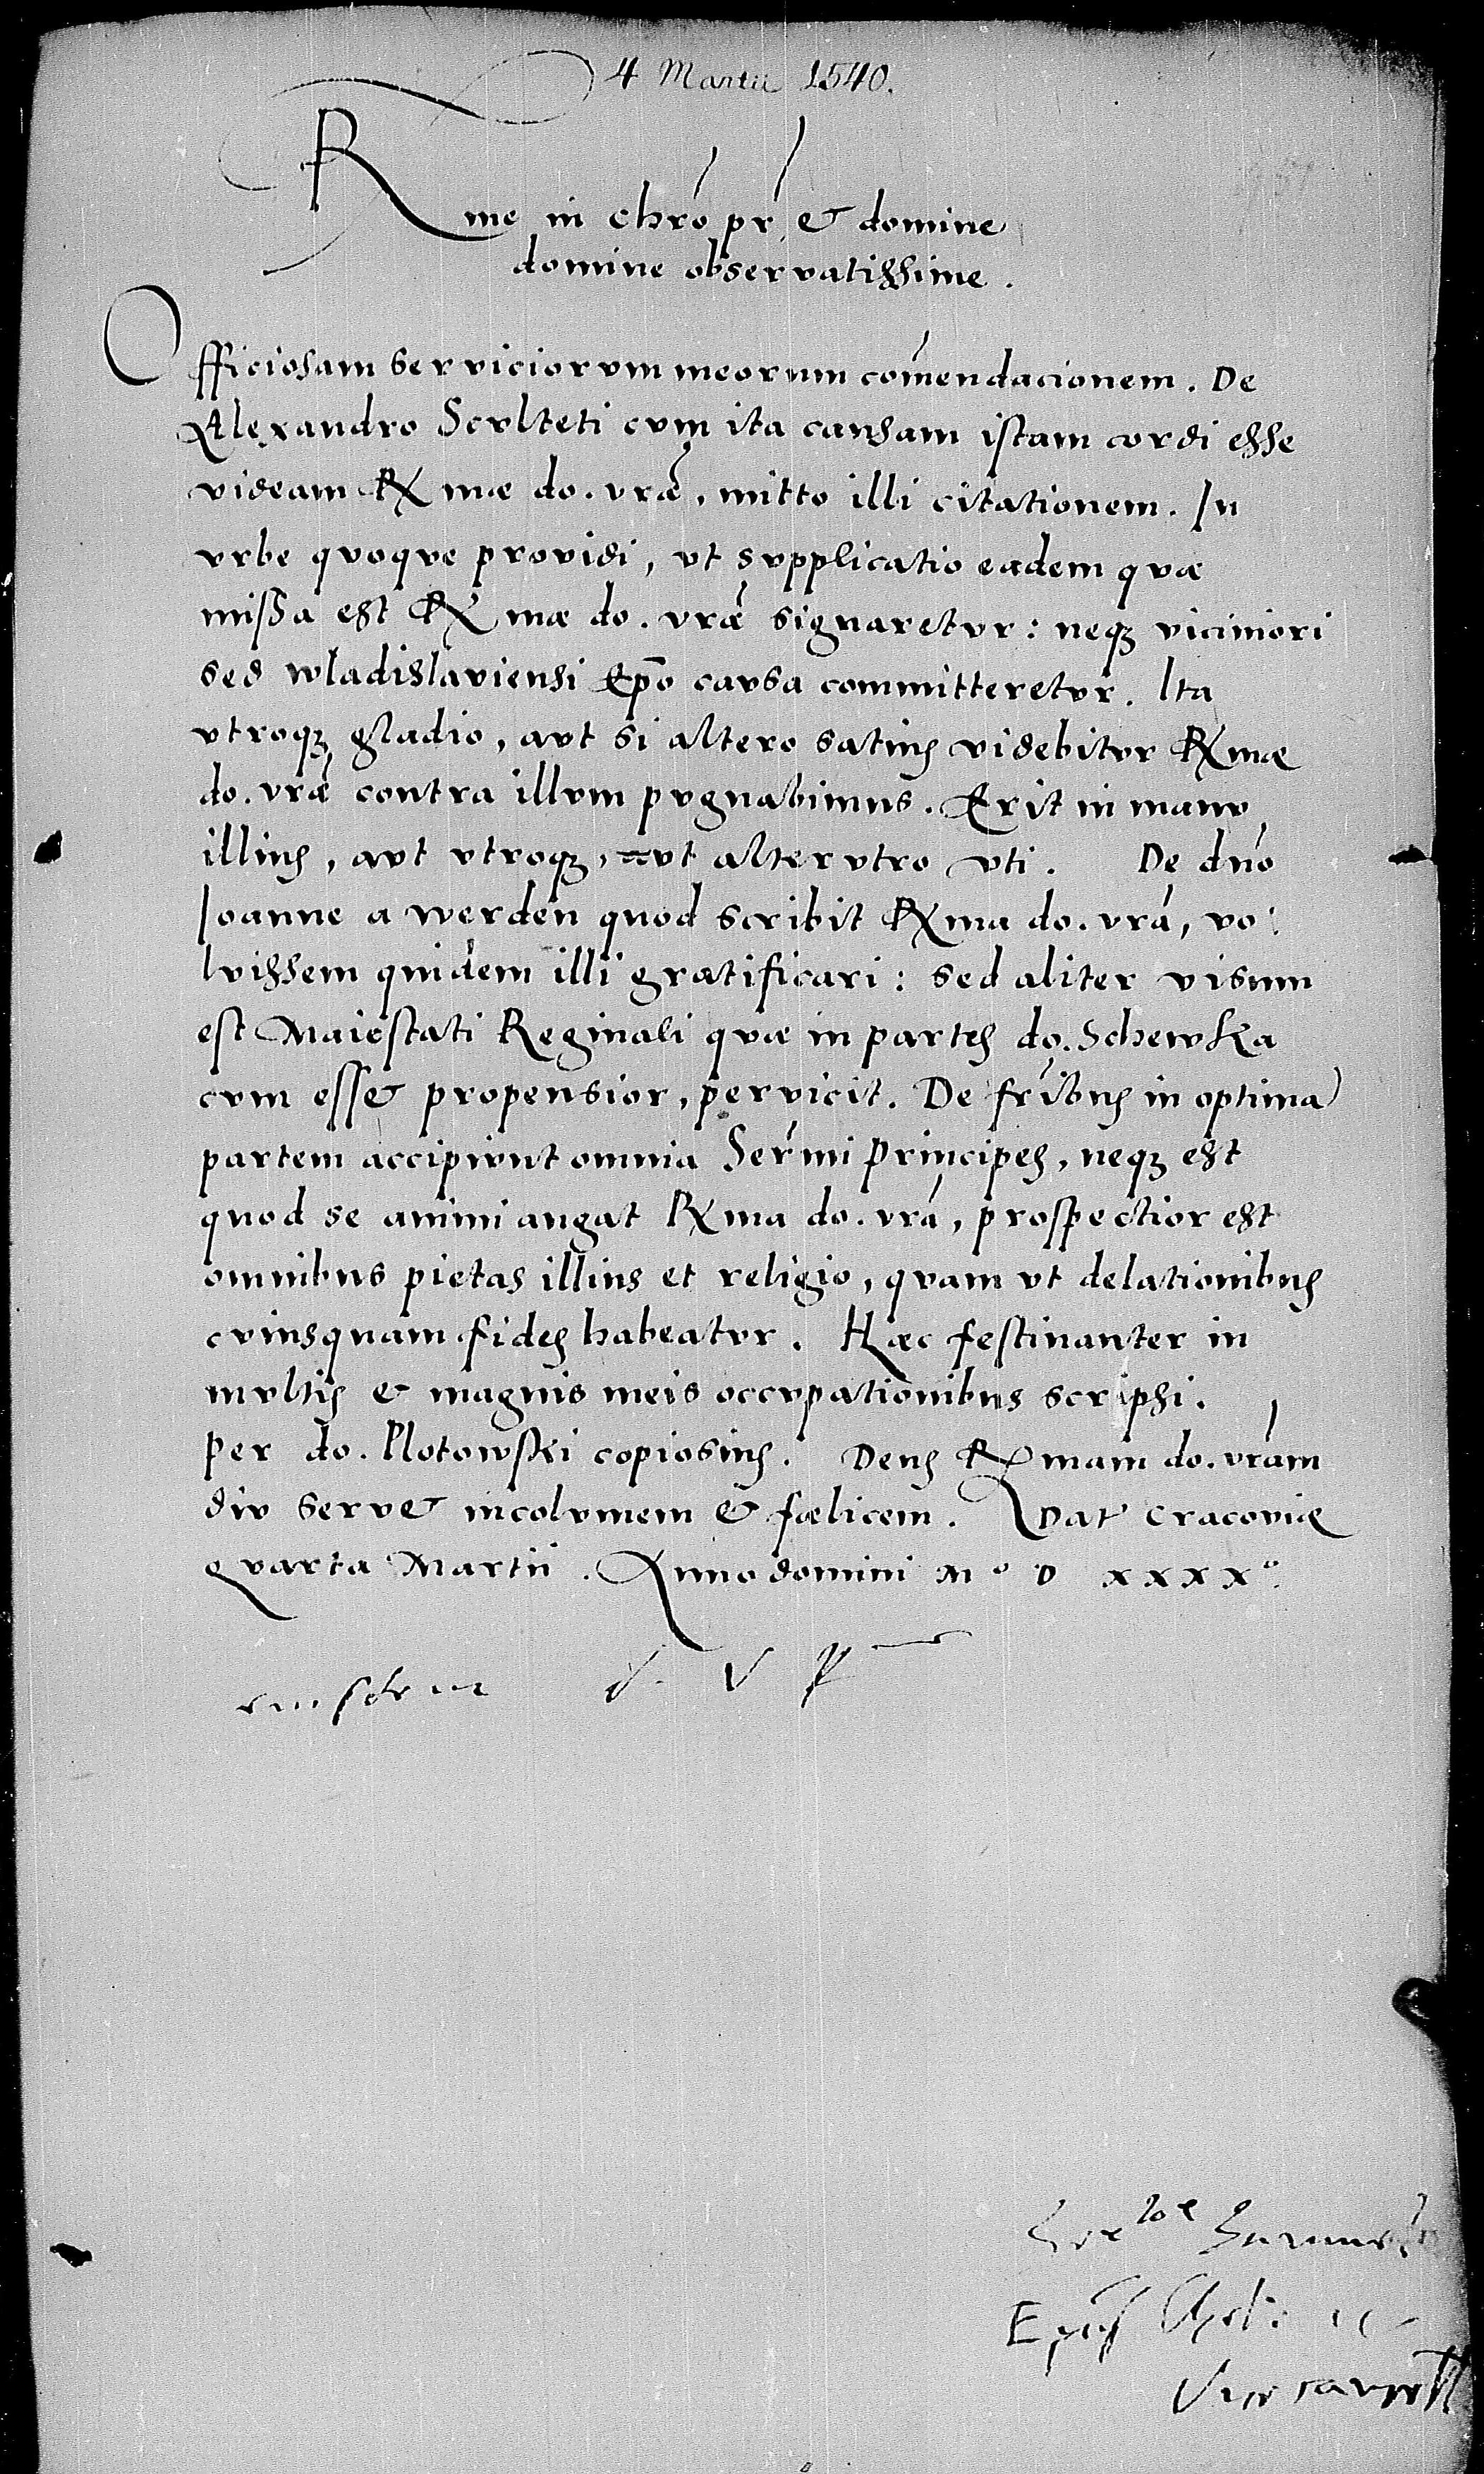 4 Martii 1540.
Rme in chro pr & domine
domine observatissime.
Officiosam serviciorvm meorum comendacionem. De
Alexandro Scvlteti cvm ita causam istam cordi esse
videam Rmæ do. vræ, mitto illi citationem. In
vrbe qvoqve providi, vt svpplicatio eadem qvæ
missa est Rmæ do. vræ signaretvr: neqʒ viciniori
sed wladislaviensi Epo cavsa committeretvr. Ita
vtroqʒ gladio, avt si altero satius videbitvr Rmæ
do. vræ contra illvm pvgnabimus. Erit in manv
illius, avt vtroqʒ, avt altervtro vti. De dno
Ioanne a werden quod scribit Rma do. vra, vo
lvissem quidem illi gratificari: sed aliter visum
est Maiestati Reginali qvæ in partes do. Schewka
cvm esset propensior, pervicit. De fribus in optima
partem accipivnt omnia Sermi Principes, neqʒ est
quod se animi angat Rma do. vra, prospectior est
omnibus pietas illius et religio, qvam vt delationibus
cviusquam fides habeatvr. Hæc festinanter in
mvltis & magnis meis occvpationibus scripsi.
Per do. Plotowski copiosius. Deus Rmam do. vram
div servet incolvmem & fœlicem. Dat Cracoviæ
qvarta Martii. Anno domini Mº D XXXXº
eiusdem d. V R
Epus